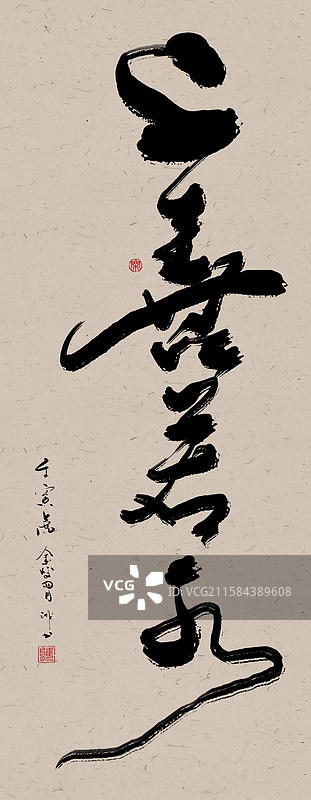 上善若水
壬寅
VCG
VCG211584389608